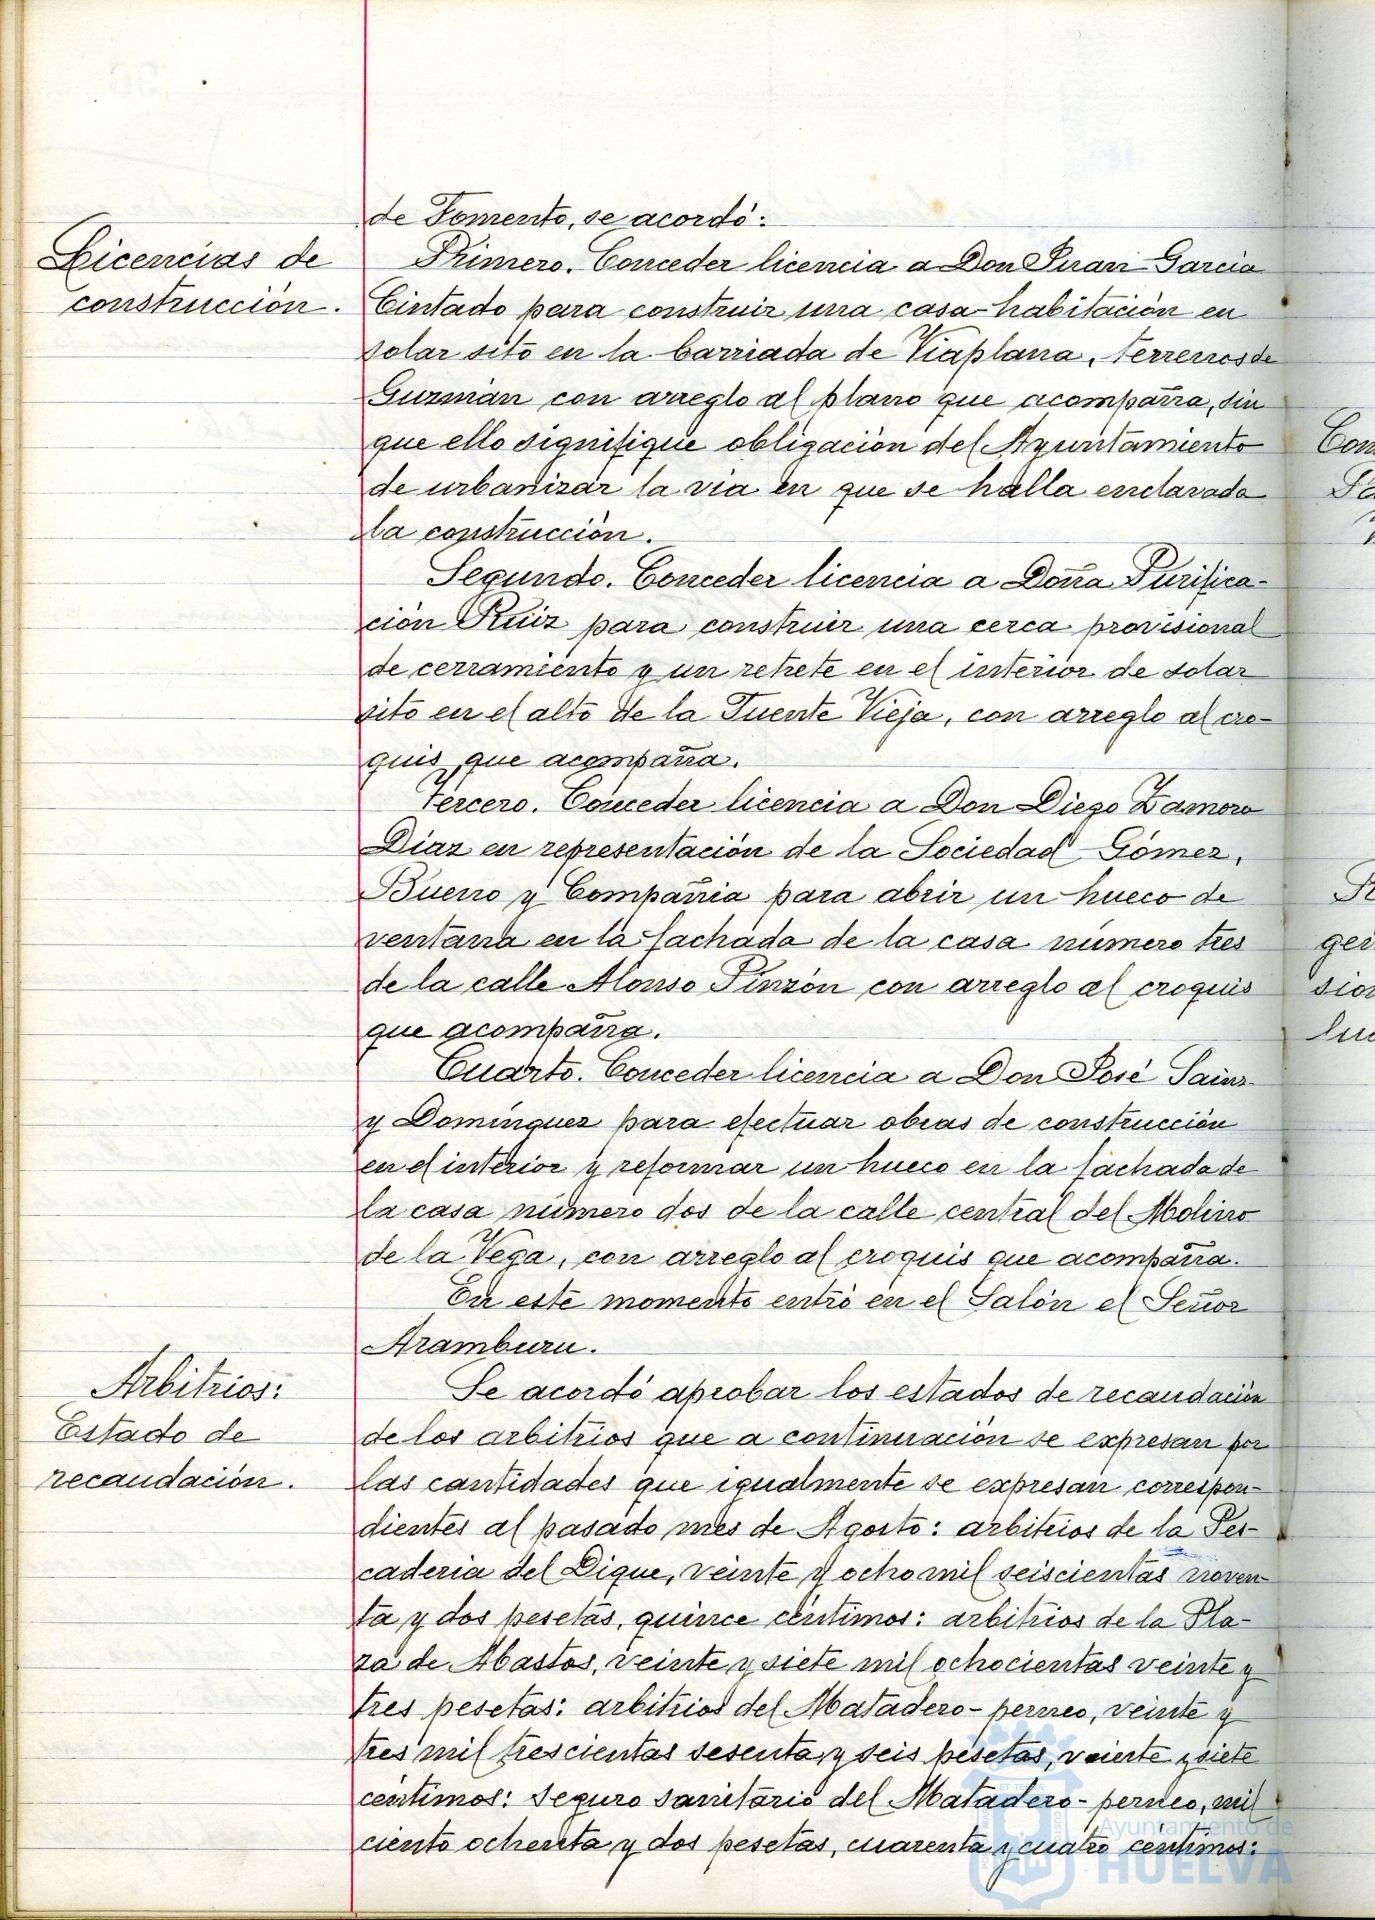 de Fomento, se acordó:
Licencias de
construcción.
Primero. Conceder licencia a Don Juan García
Cintado para construir una casa-habitación en
solar sito en la barriada de Viaplana, terrenos de
Guzmán con arreglo al plano que acompaña, sin
que ello signifique obligación del Ayuntamiento
de urbanizar la vía en que se halla enclavada
la construcción.
Segundo. Conceder licencia a Doña Purifica-
ción Ruiz para construir una cerca provisional
de cerramiento y un retrete en el interior de solar
sito en el alto de la Fuente Vieja, con arreglo al cro-
quis que acompaña.
Tercero. Conceder licencia a Don Diego Zamora
Díaz en representación de la Sociedad Gómez,
Bueno y Compañia para abrir un hueco de
ventana en la fachada de la casa número tres
de la calle Alonso Pinzón con arreglo al croquis
que acompaña.
Cuarto. Conceder licencia a Don José Sainz
y Domínguez para efectuar obras de construcción
en el interior y reformar un hueco en la fachada de
la casa número dos de la calle central del Molino
de la Vega, con arreglo al croquis que acompaña.
En este momento entró en el Salón el Señor
Aramburu.
Arbitrios:
Estado de
recaudación.
Se acordó aprobar los estados de recaudación
de los arbitrios que a continuación se expresan por
las cantidades que igualmente se expresan correspon-
dientes al pasado mes de Agosto: arbitrios de la Pes-
caderia del Dique, veinte y ocho mil seiscientas noven-
ta y dos pesetas, quince céntimos: arbitrios de la Pla-
za de Abastos, veinte y siete mil ochocientas veinte y
tres pesetas: arbitrios del Matadero-perneo, veinte y
tres mil trescientas sesenta y seis pesetas, veinte y siete
céntimos: Seguro sanitario del Matadero-perneo, mil
ciento ochenta y dos pesetas, cuarenta y cuatro centimos:
Ayuntamiento de
HUELVA